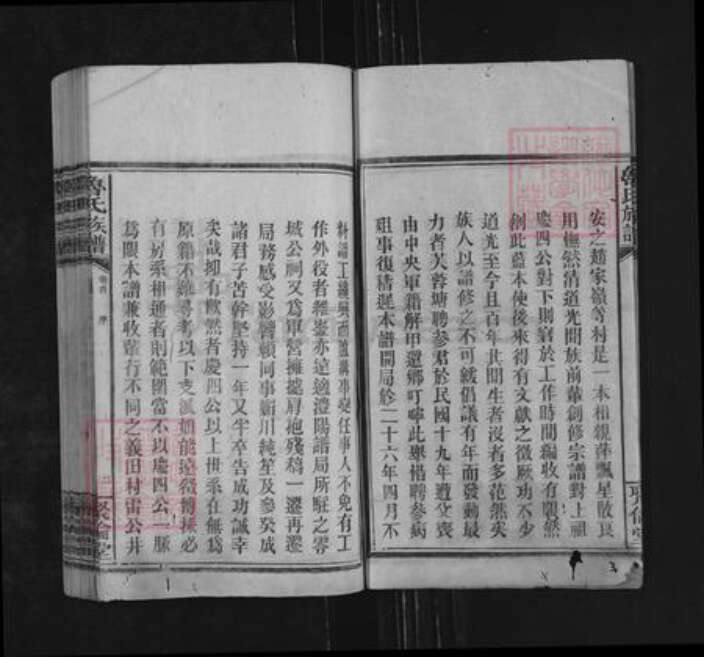 安之趙家嶺等村是一本相親萍飄星散良
用憮然清道光間族前輩創修宗譜對上祖
慶四公對下則窘於工作時間編收有
創此藍本使後來得有文獻之徵厥功不少
道光至今且百年其間生者沒者多茫然矣
族人以譜修之不可緩倡議有年而發動最
力者芙蓉塘聘參君於民國十九年遭父喪
由中央軍籍解甲還鄉叮嚀此舉惜聘參病
殂事復稽遲本譜開局於二十六年四月不
料譜工纔興而蘆溝事變任事人不免有工
作外役者維崧亦遠適澧陽譜局所駐之零
城公祠又爲軍營擁擄肩抱殘稿一遷再遷
局務感受影響賴同事衡川純笙及參癸成
諸君子苦幹堅持一年又半卒告成功誠幸
矣哉抑有歉然者慶四公以上世系在無爲
原籍不難尋考以下支派頗能遠徵博採必
有房系相通者則範圍當不以慶四公一脈
爲限本譜兼收輩行不同之義田村雷公井
魯氏族譜
卷首
序
聚倫堂